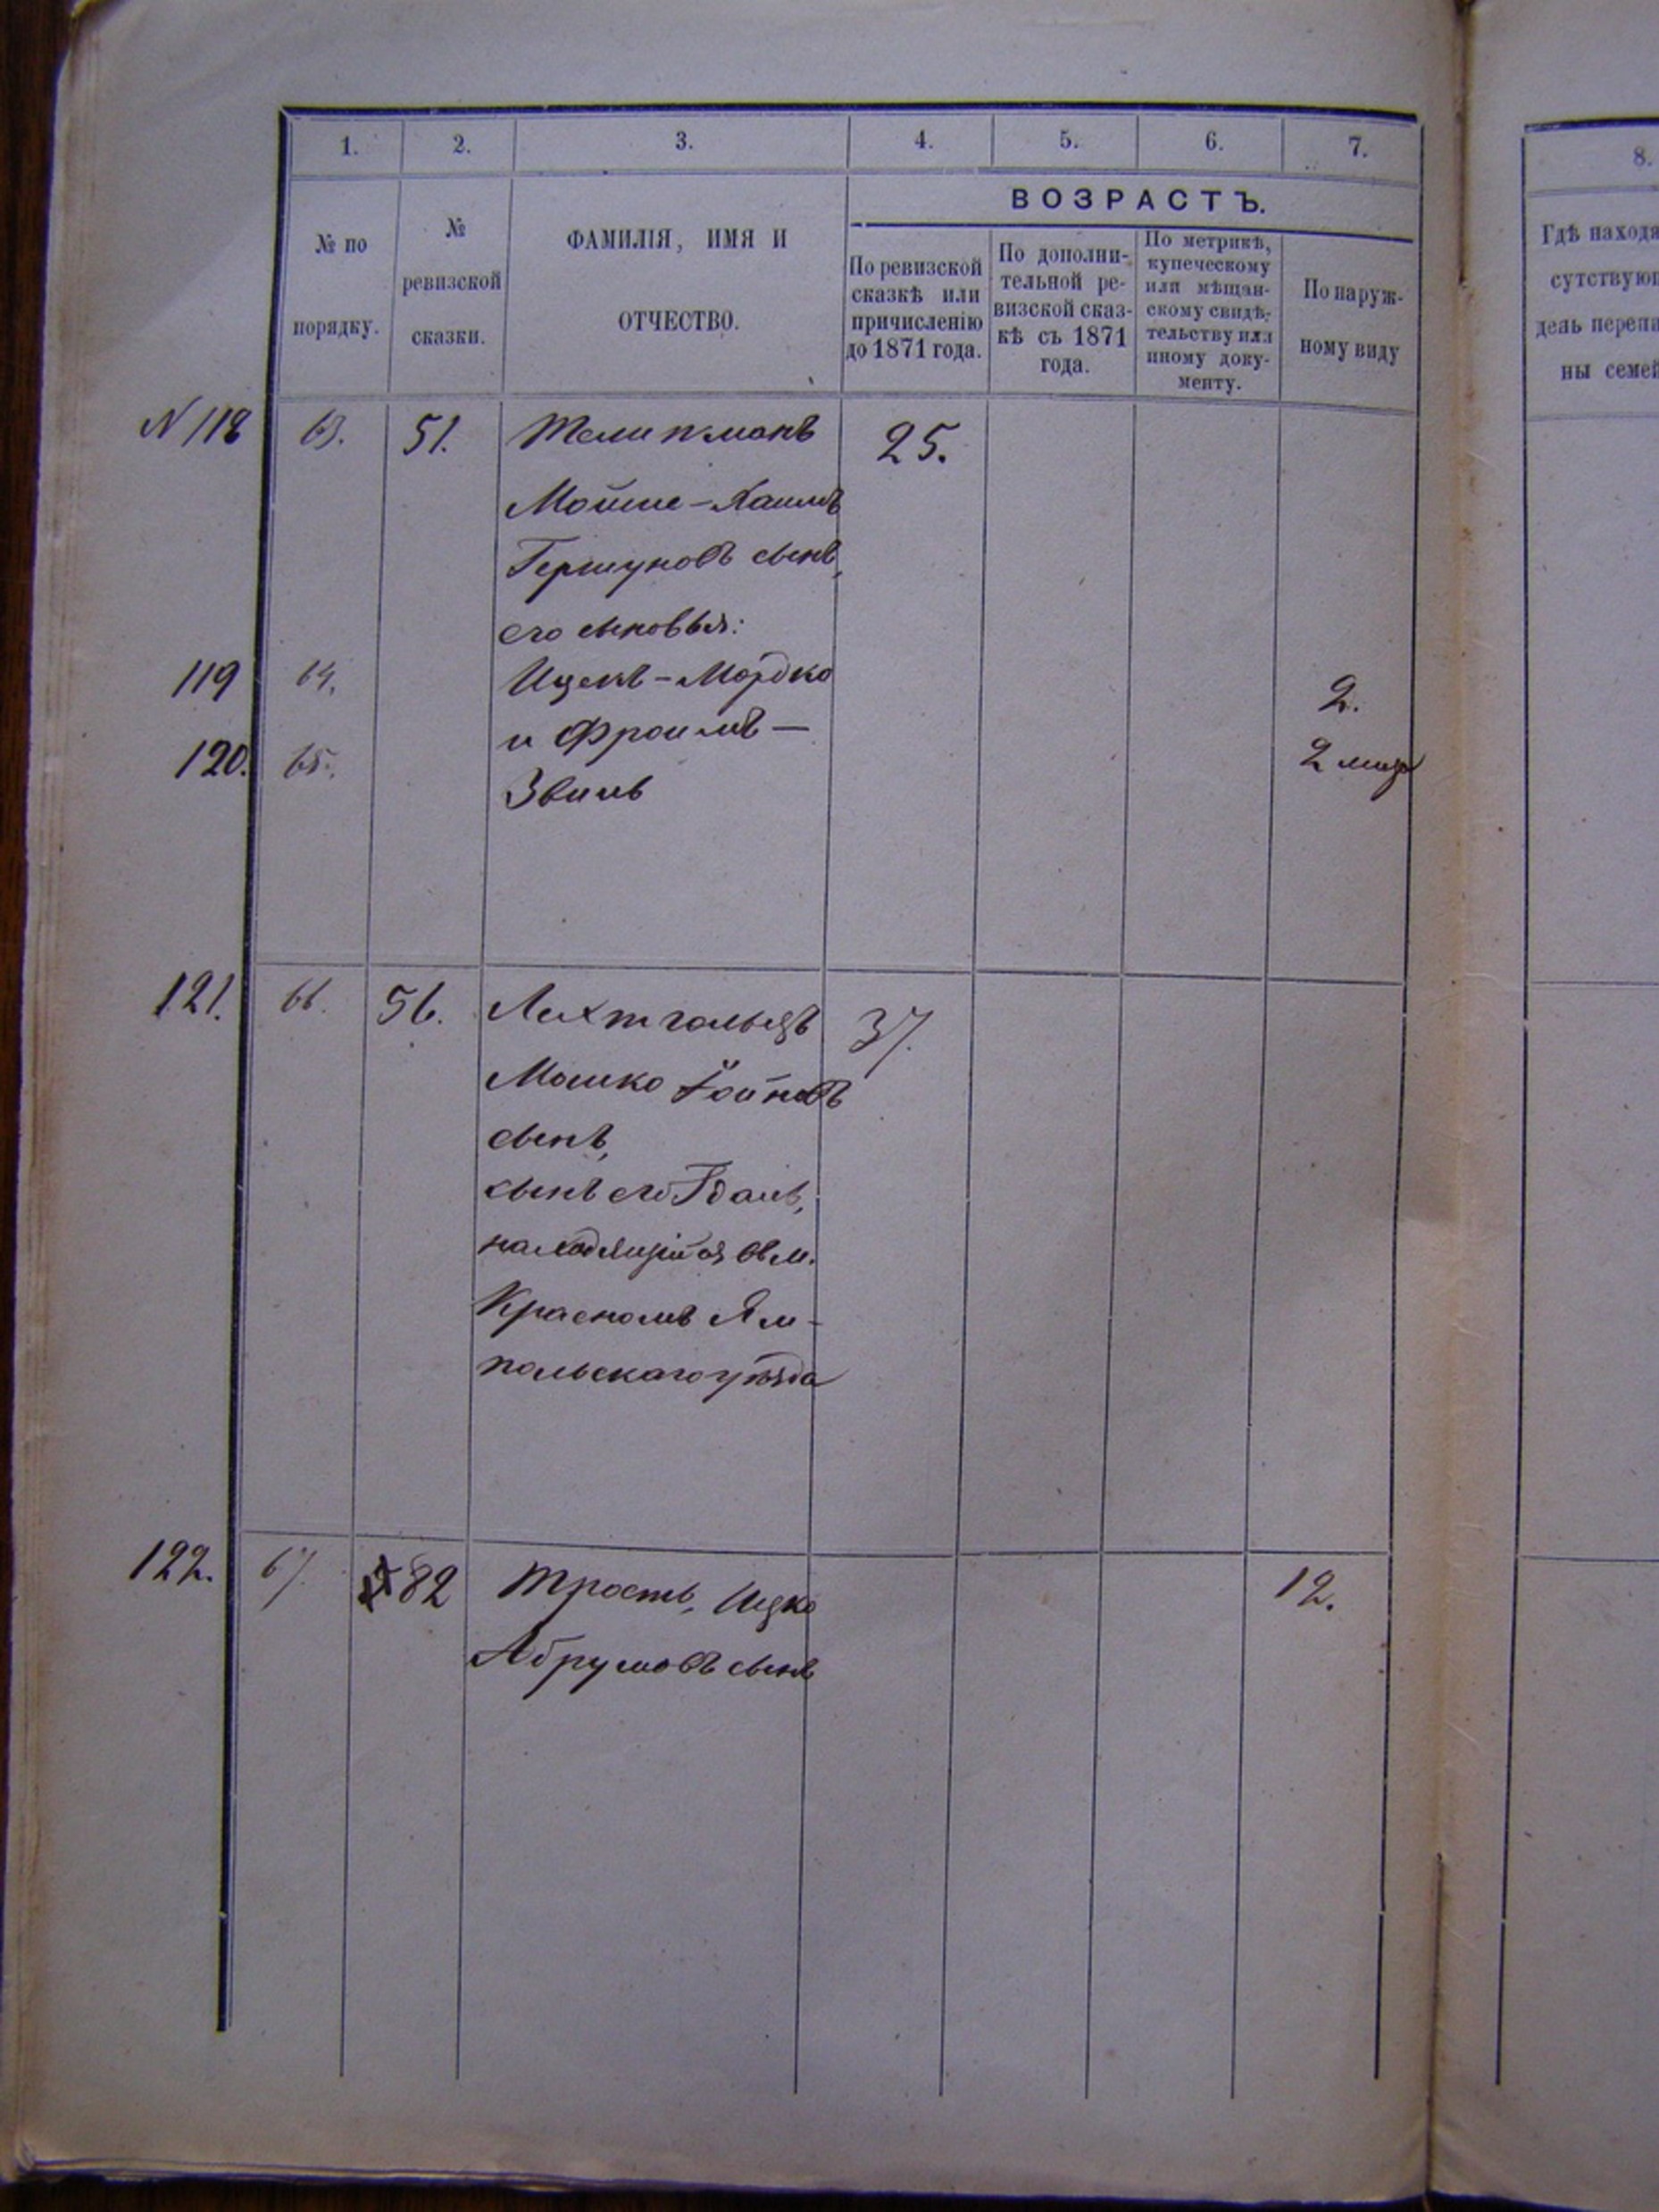 1. 2. 3. 4. 5. 6. 7.
ВОЗРАСТЪ.
№ по
порядку.
№
ревизской
сказки.
ФАМИЛІЯ, ИМЯ И
ОТЧЕСТВО.
По ревизской
сказкѣ или
причисленію
до 1871 года.
По дополни-
тельной ре-
визской сказ-
кѣ съ 1871
года.
По метрикѣ,
купеческому
или мѣщан-
скому свидѣ-
тельству или
иному доку-
менту.
По наруж-
ному виду
N 118 63. 51. 25.
Мойше-Хаимъ
Гершуновъ сынъ,
его сыновья:
119 64. Ицекъ-Мордко 2.
и Фроимъ-
120. 65. 2 мца
121. 66. 56. Лихтгольцъ 37.
Мошко
сынъ,
сынъ его
находящійся въ м.
Красномъ Ям-
польскаго уѣзда
122. 67. 82 Трость, Ицко 12.
Абрумовъ сынъ
8.
Гдѣ находя
сутствую
день переп
ны семей